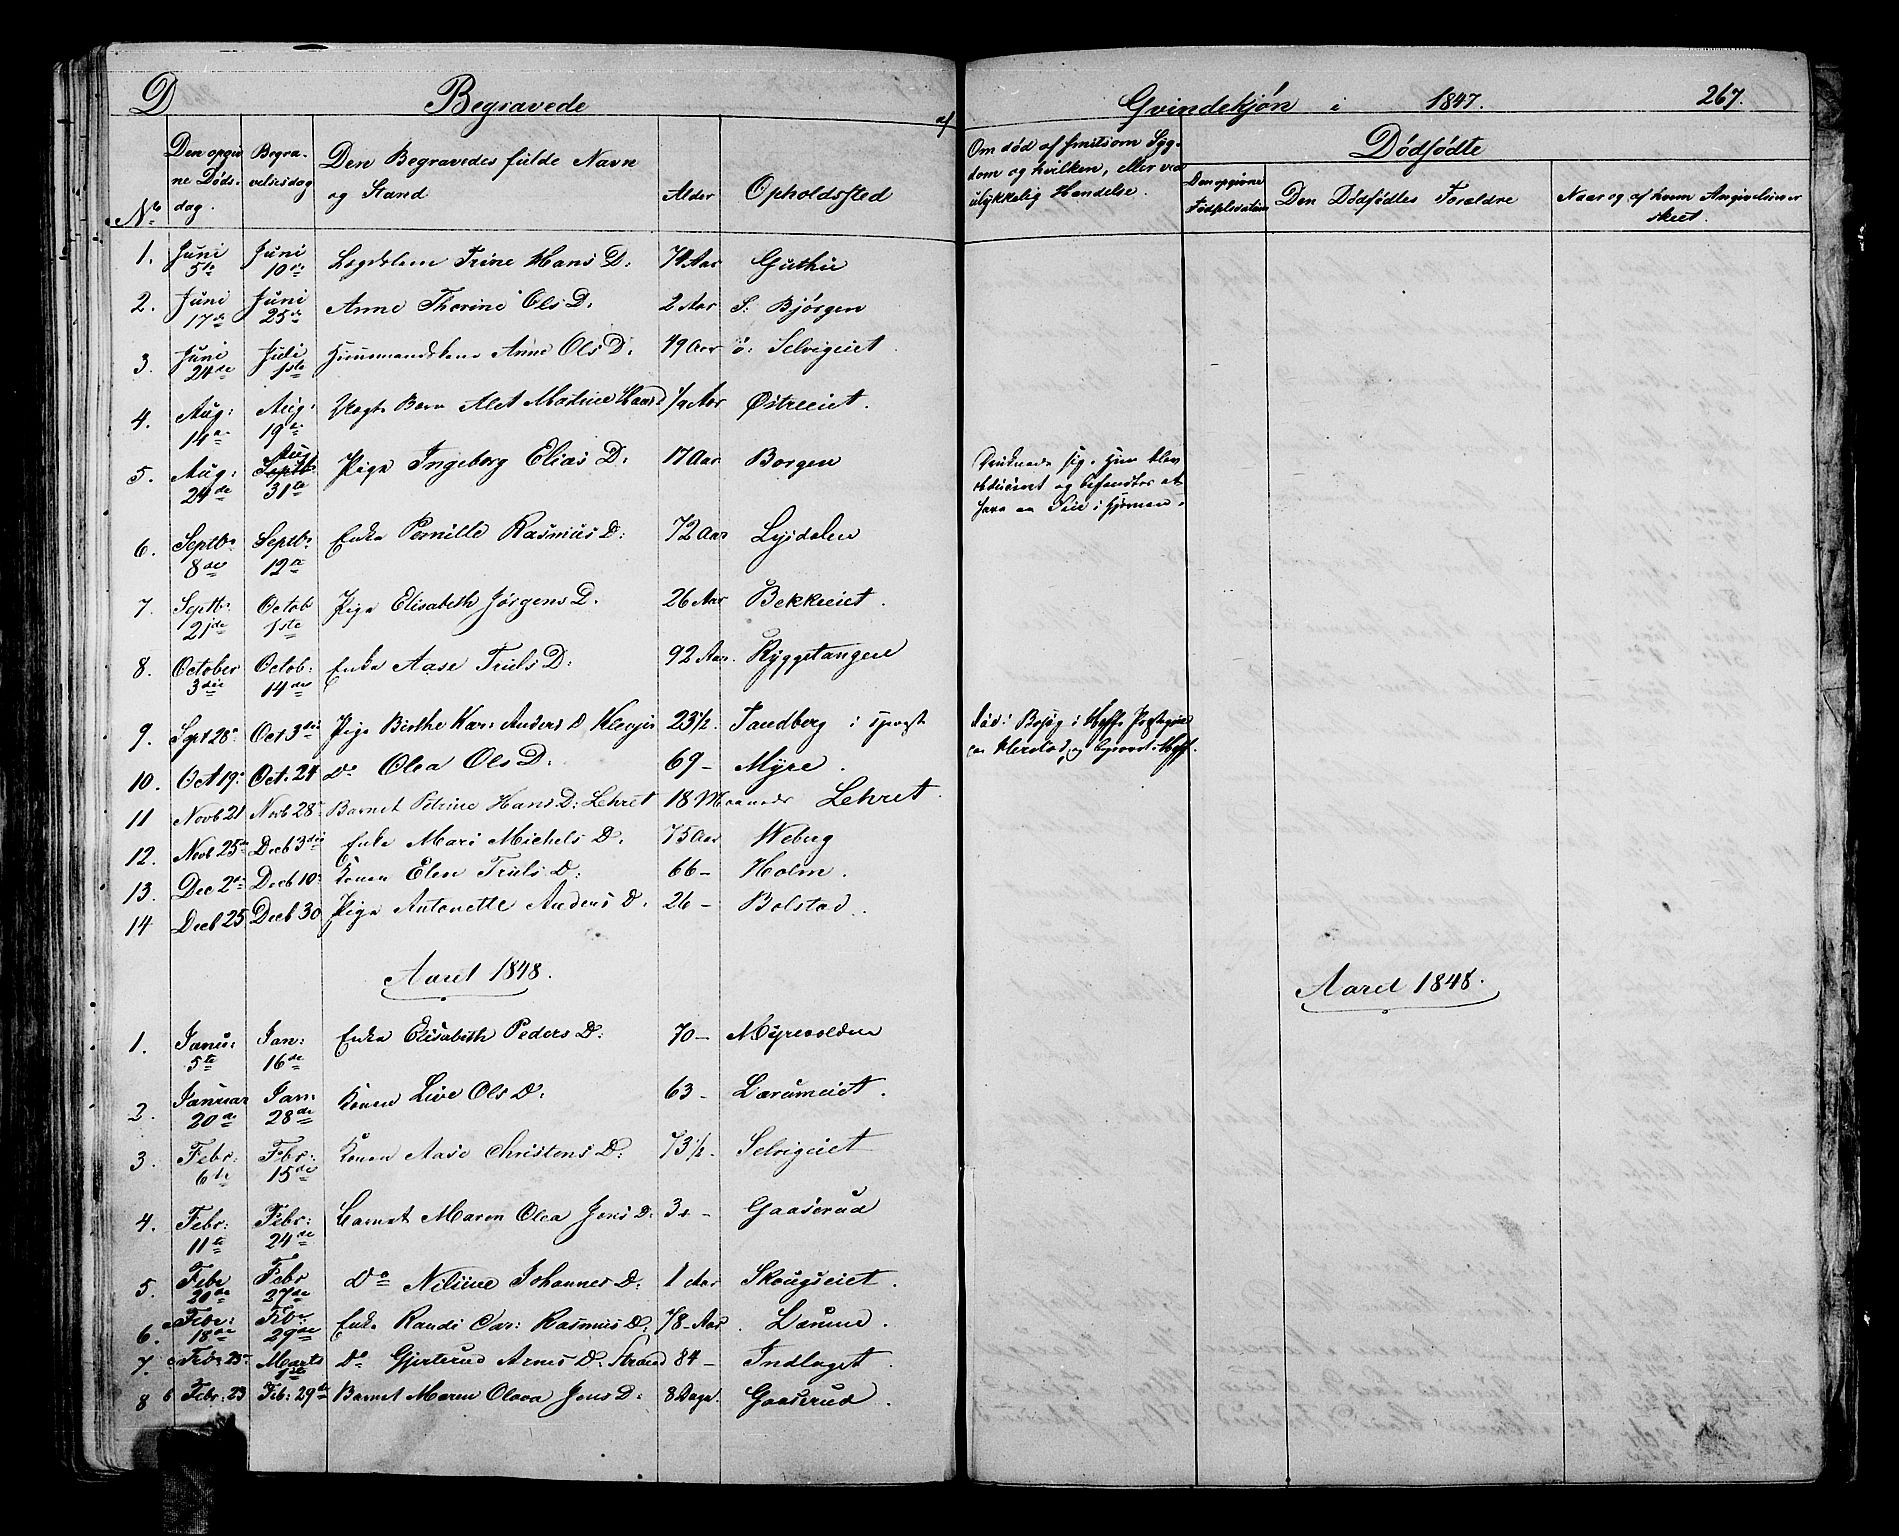 D Begravede af Qvindekjøn i 1847. 267.
No Den opgivne Dødsdag. Begravelsesdag Den Begravedes fulde Navn og Stand Alder Opholdssted Om død af smitsom Sygdom og hvilken, eller ved ulykkelig Hændelse. Dødfødte
Den opgivne Fødselsdatum Den Dødfødtes Forældre Naar og af hvem Angivelsen er skeet.
1. Juni 5te Juni 10de Trine Hans D: 74 Aar Guthu
2. Juni 17de Juni 25de Anne Thorine Ols D. 2 Aar S: Bjørgen
3. Juni 24de Juli 1ste Huusmandskone Anne Ols D. 49 Aar ø: Selvigeiet
4. Aug: 14de Aug: 19de Barn Alet Mathea 1/4 Aar Østreeiet.
5. Aug: 24de Aug 31te Pige Ingeborg Elias D. 17 Aar Borgen Druknede sig. Hun blev obduceret og befandtes at have en Feil i Hjernen.
6. Septbr 8de Septbr 12te Enke Pernille Rasmus D: 72 Aar Lysdalen
7. Septbr 21de Octob 1ste Pige Elisabeth Jørgens D. 26 Aar Bekkeeiet.
8. October 3die Octob: 14de Enke Aase Truls D: 92 Aar. Ryggetangen
9. Sept 28de Oct 3die Pige Birthe Kari Anders D 23 1/2. Sandberg i
10. Oct 19de Oct. 24 Do Olea Ols D. 69 – Myre.
11 Novb 21 Novb 28 Barnet Petrine Hans D: Lehret 18 Maaneder Lehret
12. Novb 25de Decb 3die Enke Mari Michels D. 75 Aar Weberg
13. Dec 2den Decb 10de Konen Elen Truls D: 66 – Holm.
14 Decb 25 Decb 30 Pige Antonette Anders D. 26 – Bolstad.
Aaret 1848. Aaret 1848.
1. Janu: 5te Jan: 16de Enke Elisabeth Peders D: 70 – Myrevolden
2. Januar 20de Jan: 28de Konen Live Ols D. 63 – Lærumeiet.
3. Febr: 6te Febr: 15de Konen Aase Christens D: 73 1/2. Selvigeiet
4. Febr: 11te Febr: 24de Barnet Maren Olea Jens D: 3 – Gaaserud
5. Febr 20de Febr 27de Do Johannes D: 1 Aar Skougseiet.
6. Febr: 18de Febr 29de Enke Randi Car: Rasmus D: 78 – Aar. Lærum.
7. Febr 25 Marts 1ste Do Gjertrud Arnes D. Strand 84 – Indlaget.
8 Febr: 23 Feb: 29de Barnet Maren Olava Jens D: 8 Dage. Gaaserud.